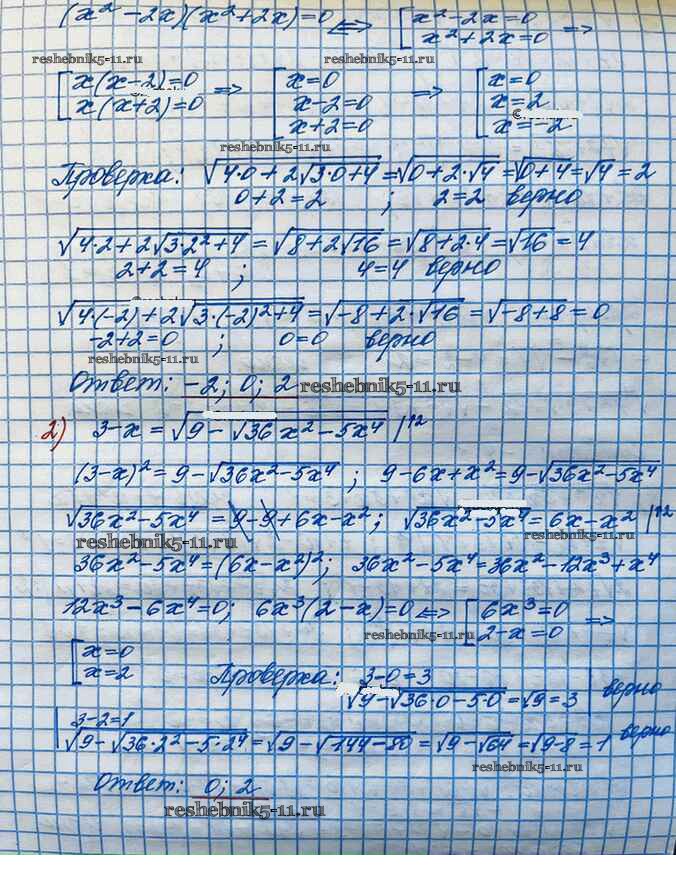 (x² - 2x)(x² + 2x) = 0 ⟺ [x² - 2x = 0; x² + 2x = 0 ⟹
reshebnik5-11.ru reshebnik5-11.ru
[x(x - 2) = 0; x(x + 2) = 0 ⟹ [x = 0; x - 2 = 0; x + 2 = 0 ⟹ [x = 0; x = 2; x = -2
reshebnik5-11.ru
Проверка: √(4·0 + 2√(3·0 + 4)) = √(0 + 2·√4) = √(0 + 4) = √4 = 2
0 + 2 = 2 ; 2 = 2 верно
√(4·2 + 2√(3·2² + 4)) = √(8 + 2√16) = √(8 + 2·4) = √16 = 4
2 + 2 = 4 ; 4 = 4 верно
√(4·(-2) + 2√(3·(-2)² + 4)) = √(-8 + 2·√16) = √(-8 + 8) = 0
-2 + 2 = 0 ; 0 = 0 верно
reshebnik5-11.ru
Ответ: -2; 0; 2 reshebnik5-11.ru
2) 3 - x = √(9 - √(36x² - 5x⁴)) |↑2
(3 - x)² = 9 - √(36x² - 5x⁴) ; 9 - 6x + x² = 9 - √(36x² - 5x⁴)
√(36x² - 5x⁴) = 9 - 9 + 6x - x² ; √(36x² - 5x⁴) = 6x - x² |↑2
reshebnik5-11.ru reshebnik5-11.ru
36x² - 5x⁴ = (6x - x²)² ; 36x² - 5x⁴ = 36x² - 12x³ + x⁴
12x³ - 6x⁴ = 0; 6x³(2 - x) = 0 ⟺ [6x³ = 0; 2 - x = 0 ⟹
reshebnik5-11.ru
[x = 0; x = 2 Проверка: 3 - 0 = 3
√(9 - √(36·0 - 5·0)) = √9 = 3 | верно
reshebnik5-11.ru
3 - 2 = 1
√(9 - √(36·2² - 5·2⁴)) = √(9 - √(144 - 80)) = √(9 - √64) = √(9 - 8) = 1 верно
reshebnik5-11.ru
Ответ: 0; 2
reshebnik5-11.ru